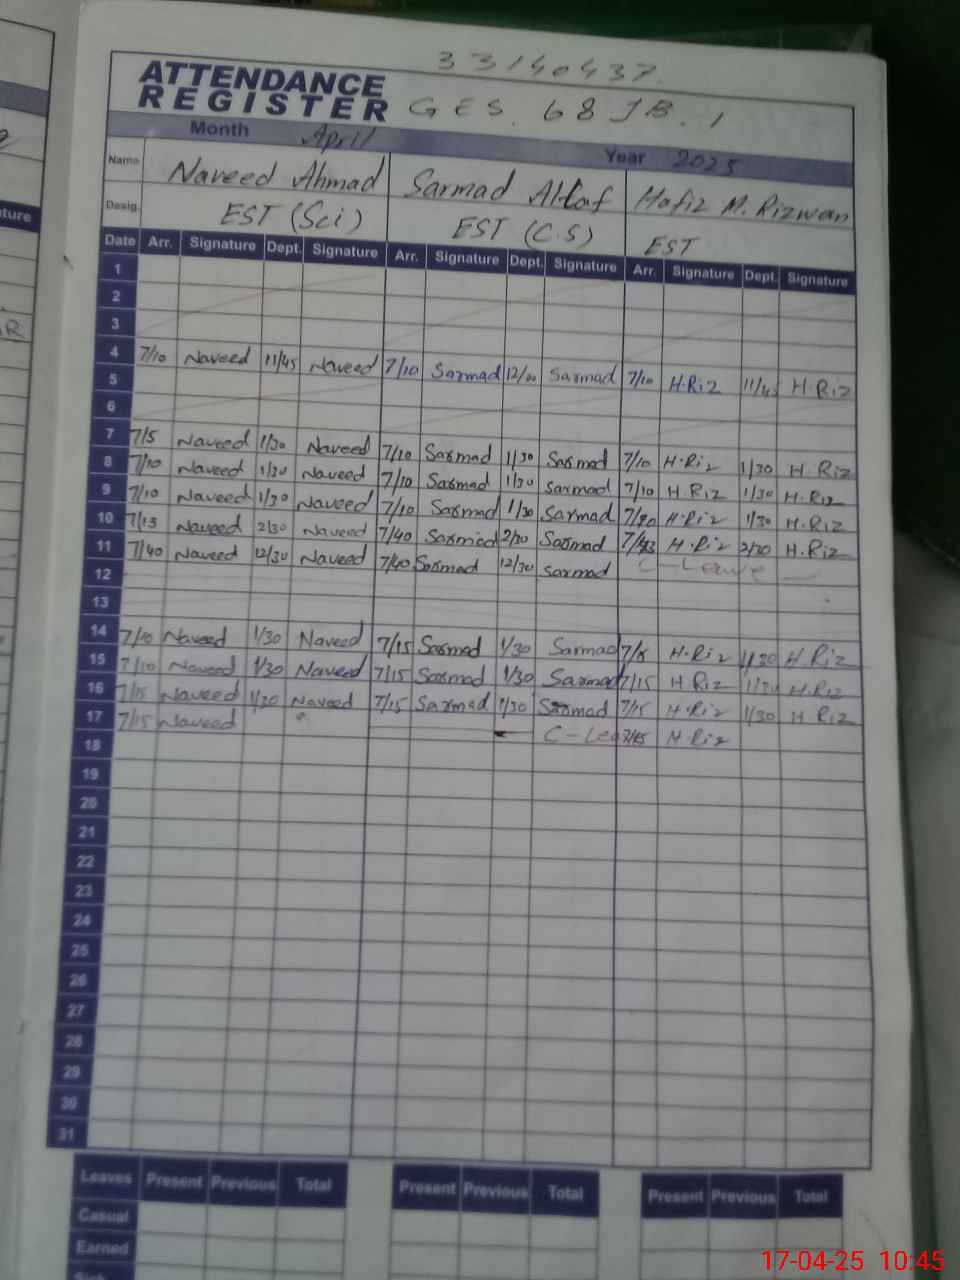 33140437
ATTENDANCE
REGISTER GES. 68 JB. 1
Month April Year 2025
Name Naveed Ahmad Sarmad Altaf Hafiz M. Rizwan
Desig. EST (Sci) EST (C.S) EST
Date Arr. Signature Dept. Signature Arr. Signature Dept. Signature Arr. Signature Dept. Signature
1
2
3
4 7/10 Naveed 11/45 Naveed 7/10 Sarmad 12/00 Sarmad 7/10 H·Riz 11/45 H·Riz
5
6
7 7/5 Naveed 1/30 Naveed 7/10 Sarmad 1/30 Sarmad 7/10 H·Riz 1/30 H·Riz
8 7/10 Naveed 1/30 Naveed 7/10 Sarmad 1/30 Sarmad 7/10 H·Riz 1/30 H·Riz
9 7/10 Naveed 1/30 Naveed 7/10 Sarmad 1/30 Sarmad H·Riz 1/30 H·Riz
10 7/13 Naveed 2/30 Naveed 7/40 Sarmad 2/30 Sarmad H·Riz 2/30 H·Riz
11 7/40 Naveed 12/30 Naveed 7/40 Sarmad 12/30 Sarmad C-Leave
12
13
14 7/10 Naveed 1/30 Naveed 7/15 Sarmad 1/30 Sarmad H·Riz 1/30 H·Riz
15 7/10 Naveed 1/30 Naveed 7/15 Sarmad 1/30 Sarmad 7/15 H·Riz 1/30 H·Riz
16 7/15 Naveed 1/30 Naveed 7/15 Sarmad 1/30 Sarmad 7/15 H·Riz 1/30 H·Riz
17 7/15 Naveed C-Lea 7/15 H·Riz
18
19
20
21
22
23
24
25
26
27
28
29
30
31
Leaves Present Previous Total Present Previous Total Present Previous Total
Casual
Earned
17-04-25 10:45